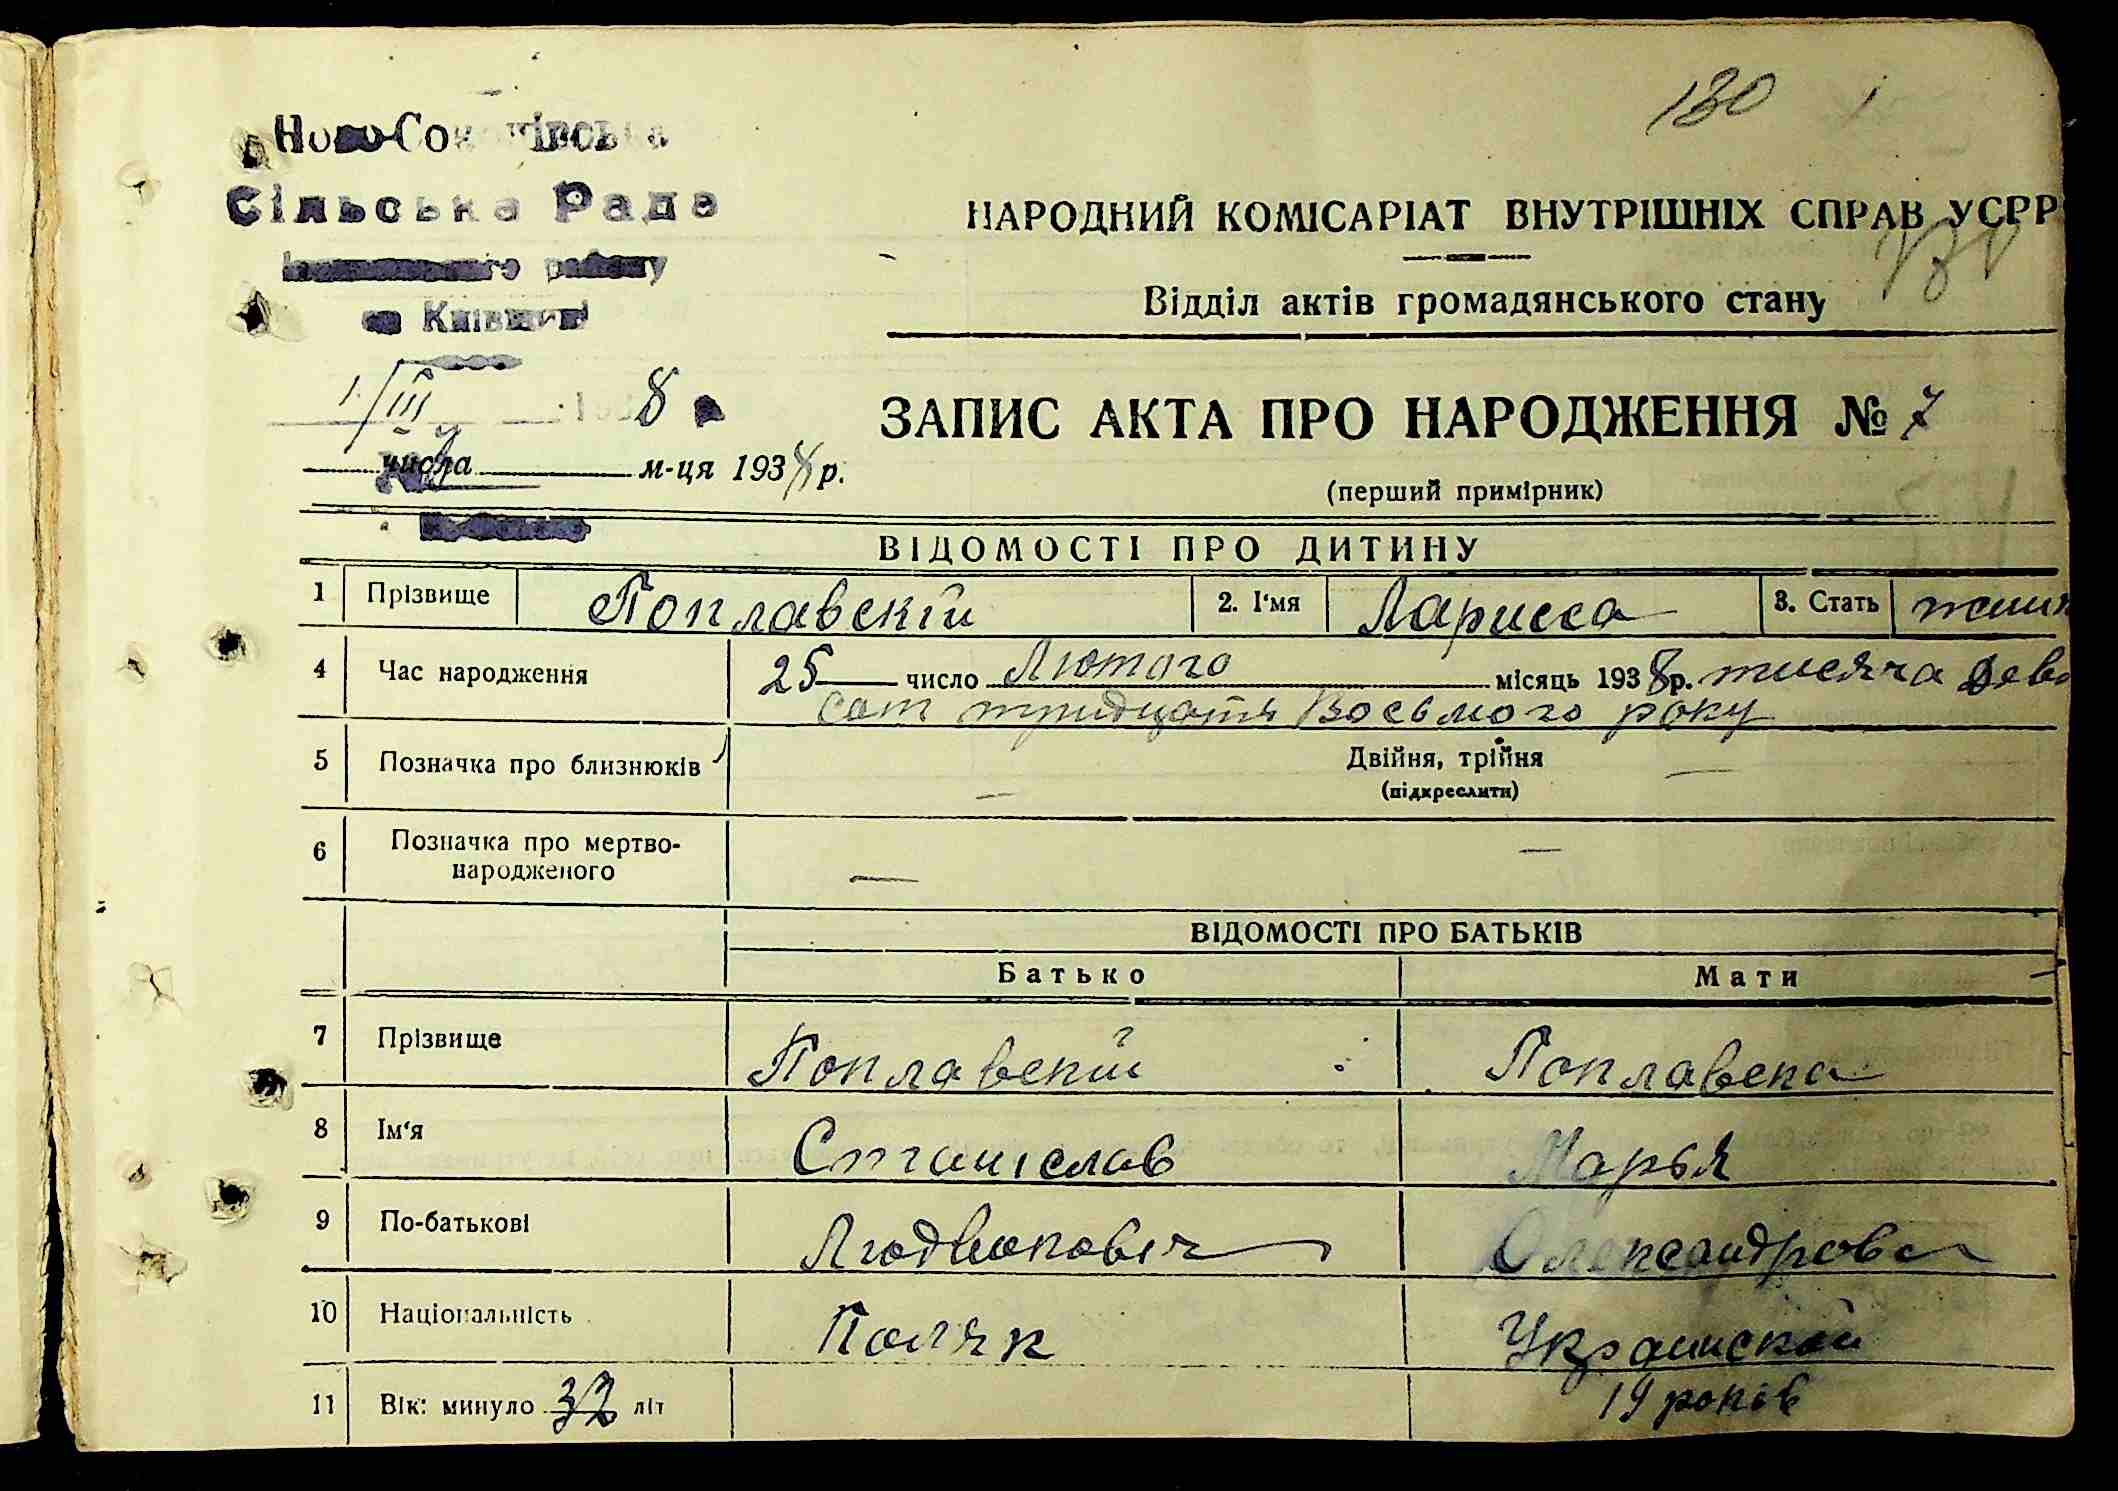 130
Сільська Рада
району
Київщині
НАРОДНИЙ КОМІСАРІАТ ВНУТРІШНІХ СПРАВ УСРР
130
Відділ актів громадянського стану
1/III 8
числа м-ця 1938 р.
ЗАПИС АКТА ПРО НАРОДЖЕННЯ № 7
(перший примірник)
ВІДОМОСТІ ПРО ДИТИНУ
1 Прізвище Поплавскій 2. І'мя Ларисса 3. Стать
4 Час народження 25 число Лютого місяць 1938р. тисяча дев
сот тридцятя Восьмого року
5 Позначка про близнюків Двійня, трійня
(підкреслити)
6 Позначка про мертво-
народженого
ВІДОМОСТІ ПРО БАТЬКІВ
Батько Мати
7 Прізвище Поплавский Поплавска
8 Ім'я Станіслав Марья
9 По-батькові Людвіковіч Олександровa
10 Національність Поляк Украинской
11 Вік: минуло 32 літ 19 років